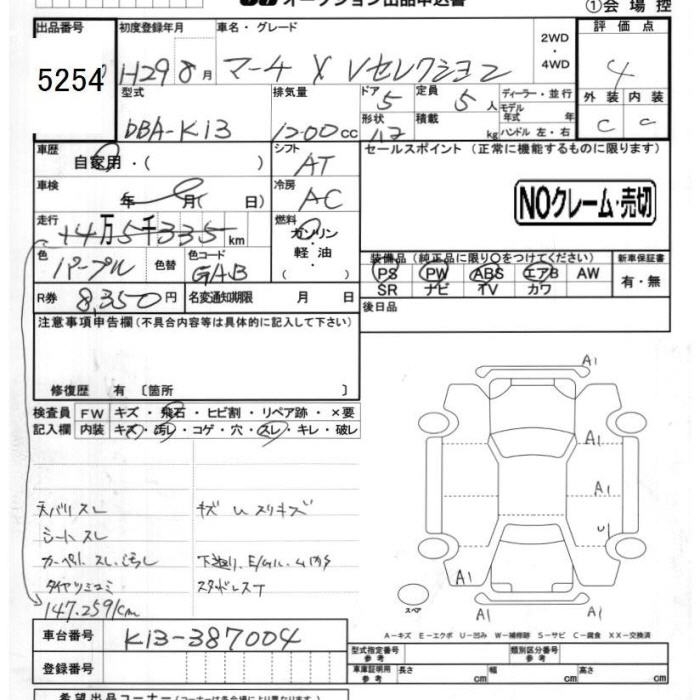 オークション出品申込書
①会場控
出品番号
5254
初度登録年月
H29 8月
車名・グレード
マーチ X Vセレクション
2WD
・
4WD
評価点
4
型式
DBA-K13
排気量
1200cc
ドア
5
形状
定員
5人
積載
kg
ディーラー・並行
モデル
年式 年
ハンドル 左・右
外装 内装
C C
車歴
自家用・( )
シフト
AT
セールスポイント (正常に機能するものに限ります)
車検
年 月( 日)
冷房
AC
NOクレーム・売切
走行
14万5千335km
燃料
ガソリン
・
軽油
・( )
色
パープル
色替
色コード
GAB
装備品(純正品に限り〇をつけてください)
PS PW ABS エアB AW
SR ナビ TV カワ
新車保証書
有・無
R券
8,350円
名変通知期限 月 日
後日品
注意事項申告欄(不具合内容等は具体的に記入して下さい)
修復歴 有 〔箇所 〕
検査員
記入欄
FW キズ・飛石・ヒビ割・リペア跡・×要
内装 キズ・汚レ・コゲ・穴・スレ・キレ・破レ
天バリスレ
キズ U スリキズ
シートスレ
カーペットスレ、汚レ
下廻り、E/ルーム内サ
スタッドレスT
147.259km
A1
A1
A1
U1
A1
A1 A1
スペア
A-キズ E-エクボ U-凹み W-補修跡 S-サビ C-腐食 XX-交換済
車台番号
K13-387004
登録番号
型式指定番号
参考
類別区分番号
参考
車庫証明用
参考
長さ cm
幅 cm
高さ cm
希望出品コーナー(コーナーは各会場により異なります)